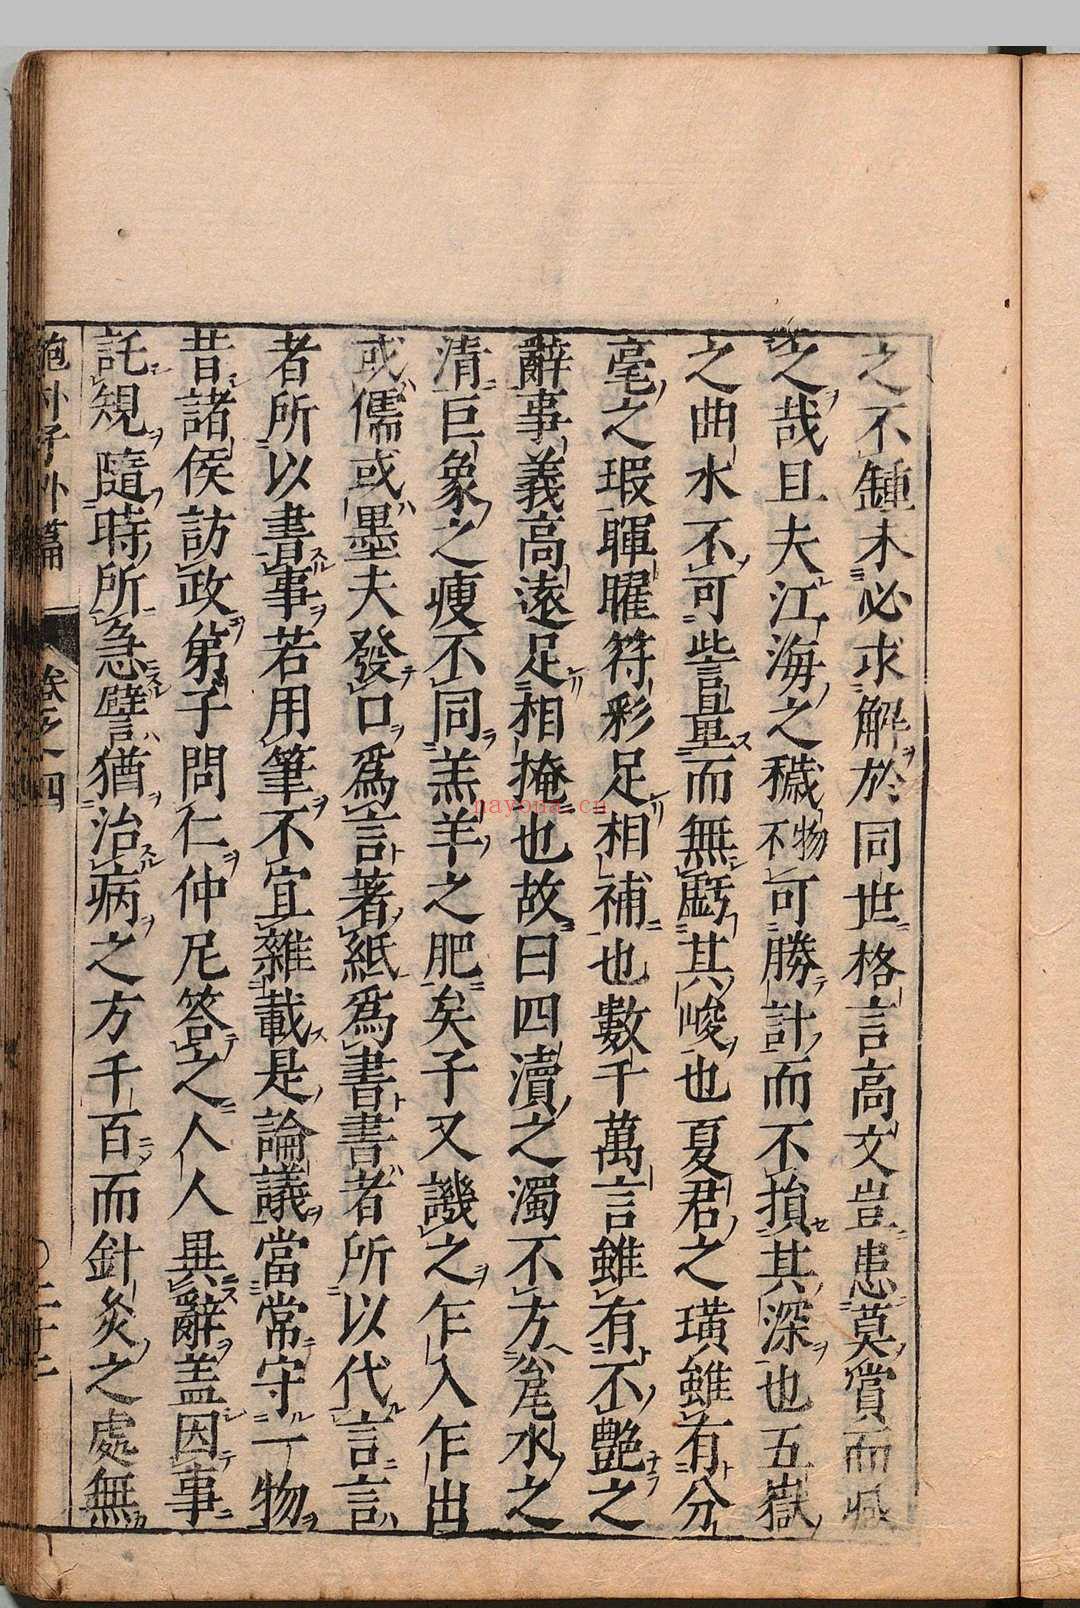 之不鍾未必求解於同世格言高文豈患莫賞而減
之哉且夫江海之穢物不可勝計而不損其深也五嶽
之曲水不可訾量而無虧其峻也夏君之璜雖有分
毫之瑕暉曜符彩足相補也數千萬言雖有不艷之
辭事義高遠足相掩也故曰四瀆之濁不方瓮水之
清巨象之瘦不同羔羊之肥矣子又譏之乍入乍出
或儒或墨夫發口爲言著紙爲書書者所以代言言
者所以書事若用筆不宜雜載是論議當常守一物
昔諸侯訪政弟子問仁仲尼答之人人異辭盖因事
託規隨時所急譬猶治病之方千百而針灸之處無
抱朴子外篇 卷之四 〇二十二
nayona.cn